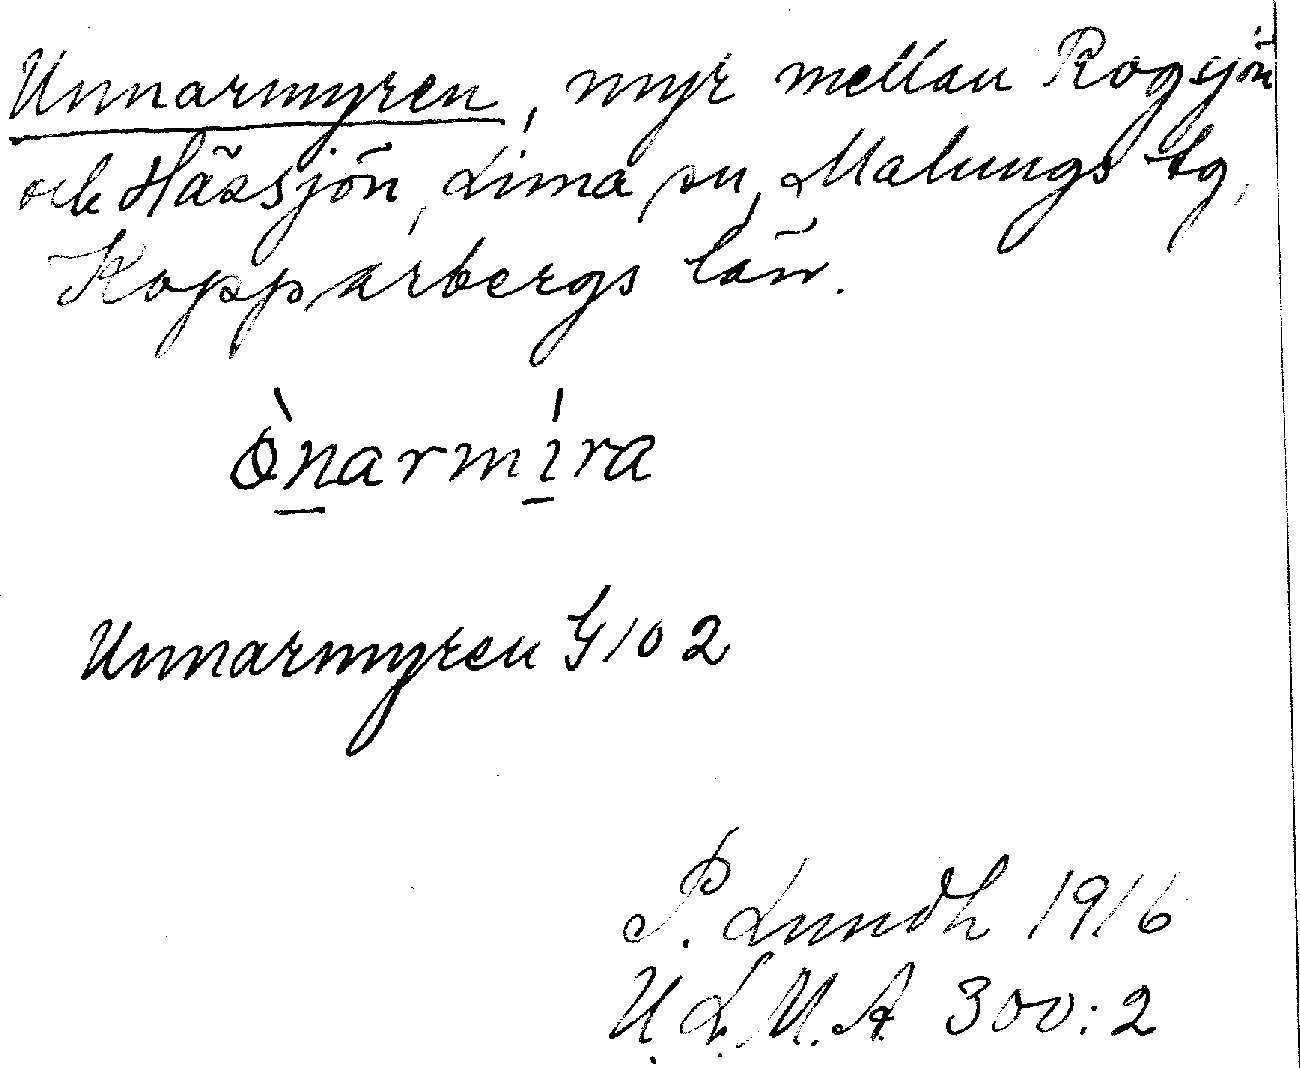 Unnarmyren, myr mellan Rogsjön
och Hässjön, Lima sn, Malungs tg,
Kopparbergs län.
ò̱narmíra
Unnarmyren G102
P. Lundh 1916
U.L.M.A 300:2